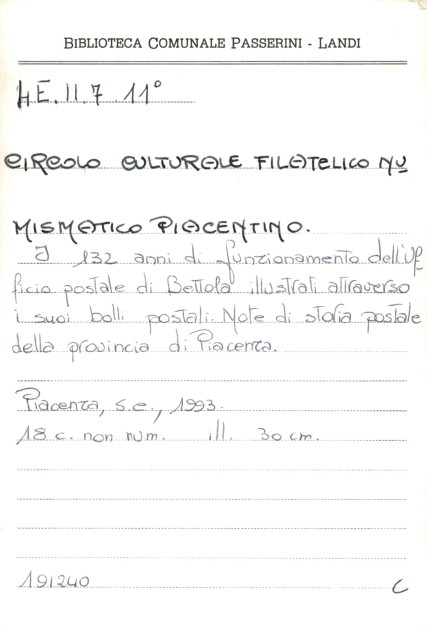 BIBLIOTECA COMUNALE PASSERINI - LANDI
4E.II.7 11°
CIRCOLO CULTURALE FILATELICO NU
MISMATICO PIACENTINO.
I 132 anni di funzionamento dell'Uf
ficio postale di Bettola illustrati attraverso
i suoi bolli postali. Note di storia postale
della provincia di Piacenza.
Piacenza, s.e., 1993.
18 c. non num. ill. 30 cm.
191240 C